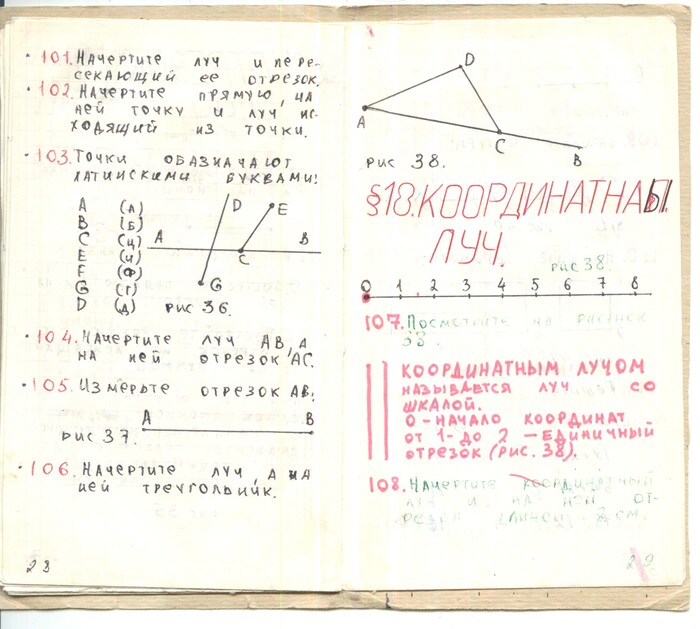 101. Начертите луч и пере-
секающий ее отрезок.
102. Начертите прямую, на
ней точку и луч ис-
ходящий из точки.
103. Точки обазначают
латинскими буквами:
A (А)
B (Б)
C (Ц)
E (И)
F (Ф)
G (Г)
D (Д)
D E
A C B
G
рис 36.
104. Начертите луч AB, а
на ней отрезок AC.
105. Измерьте отрезок AB.
A B
рис 37.
106. Начертите луч, а на
ней треугольник.
28
D
A
C
B
рис 38.
§18. КООРДИНАТНЫ.
ЛУЧ.
рис 38.
0 1 2 3 4 5 6 7 8
107. Посмотрите на рисунок
38.
КООРДИНАТНЫМ ЛУЧОМ
называется луч со
шкалой.
0 – начало координат
от 1- до 2 – единичный
отрезок (рис. 38).
108. Начертите координатный
луч и на нём от-
резок длиной 2 см.
29